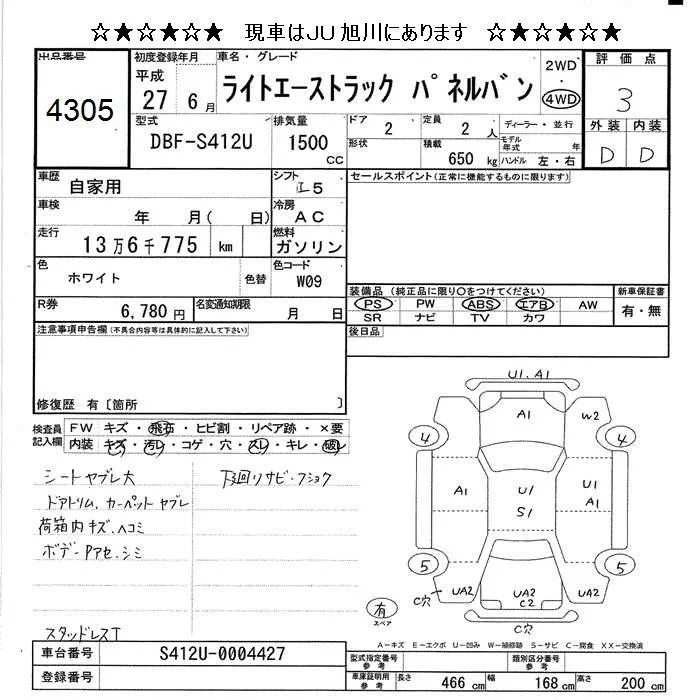 ☆★☆★☆★ 現車はJU旭川にあります ☆★☆★☆★
出品番号
4305
初度登録年月
平成
27 6月
車名・グレード
ライトエーストラック パネルバン
2WD
・
4WD
評価点
3
型式
DBF-S412U
排気量
1500
CC
ドア
2
定員
2人
ディーラー・並行
形状
積載
650 kg
モデル年式 年
ハンドル 左・右
外装 内装
D D
車歴
自家用
シフト
I5
セールスポイント(正常に機能するものに限ります)
車検
年 月( 日)
冷房
AC
走行
13万6千775 km
燃料
ガソリン
色
ホワイト
色替
色コード
W09
装備品(純正品に限り○をつけてください)
新車保証書
PS PW ABS エアB AW
SR ナビ TV カワ
有・無
R券
6,780円
名変通知期限
月 日
後日品
注意事項申告欄(不具合内容等は具体的に記入して下さい)
修復歴 有〔箇所 〕
検査員記入欄
FW キズ・飛石・ヒビ割・リペア跡・×要
内装 キズ・汚レ・コゲ・穴・スレ・キレ・破レ
シートヤブレ大
下回リサビ・フショク
ドアトリム、カーペットヤブレ
荷箱内キズ、ヘコミ
ボデーPアセ、シミ
スタッドレスT
U1、A1
A1
W2
4
4
A1
U1
S1
U1
A1
5
5
C穴
UA2
UA2
C2
UA2
有
スペア
C穴
A-キズ E-エクボ U-凹み W-補修跡 S-サビ C-腐食 XX-交換済
車台番号
S412U-0004427
型式指定番号
参考
類別区分番号
参考
登録番号
車庫証明用
参考
長さ 466 cm
幅 168 cm
高さ 200 cm